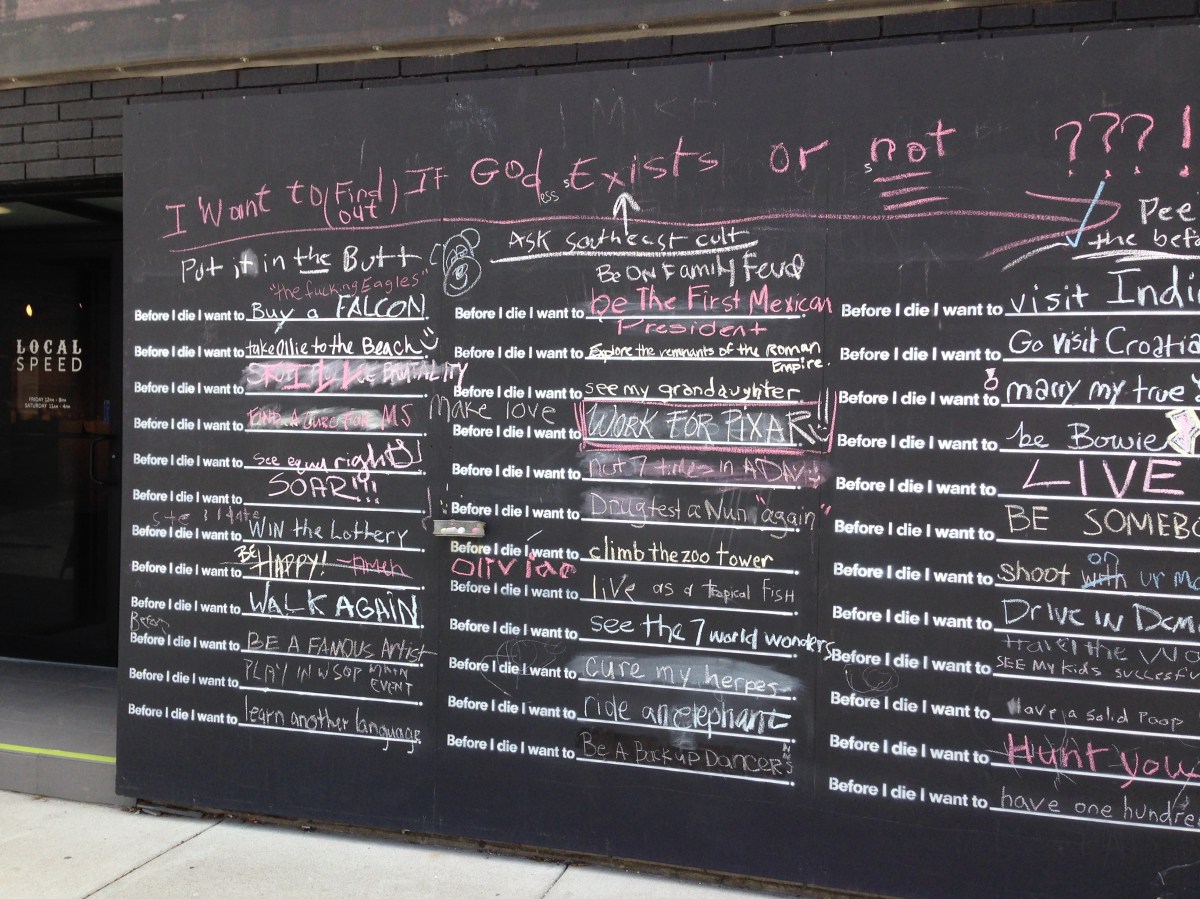 I Want to (Find out) If Godess Exists or snot ???!
Put it in the Butt
ASK Southeast cult
Pee
the befo
"the fucking Eagles"
Before I die I want to Buy a FALCON
Before I die I want to take Ollie to the Beach
Before I die I want to BRUTALITY
Before I die I want to FIND A CURE FOR MS
Before I die I want to see equal rights
Before I die I want to SOAR!!!
Before I die I want to WIN the LOTTERY
Before I die I want to BE HAPPY! Amen
Before I die I want to WALK AGAIN
Before
Before I die I want to BE A FAMOUS ARTIST
Before I die I want to PLAY IN WSOP MAIN EVENT
Before I die I want to learn another language
Be ON Family Feud
Before I die I want to be The First Mexican President
Before I die I want to Explore the remnants of the Roman Empire.
Before I die I want to see my grandaughter
make love
Before I die I want to WORK FOR PIXAR!!
Before I die I want to not in A DAY
Before I die I want to Drugtest a Nun "again"
Before I die I want to climb the zoo tower
OLIVIAC
Before I die I want to live as a tropical FISH
Before I die I want to see the 7 world wonders
Before I die I want to cure my herpes
Before I die I want to ride an elephant
Before I die I want to Be A Backup Dancer
Before I die I want to visit Indi
Before I die I want to Go visit Croatia
Before I die I want to marry my true
Before I die I want to be Bowie
Before I die I want to LIVE
Before I die I want to BE SOMEBO
Before I die I want to shoot with on ur m
Before I die I want to DRIVE IN Dem
travel the wo
Before I die I want to SEE My kids successfu
Before I die I want to Have a solid poop
Before I die I want to Hunt you
Before I die I want to have one hundre
LOCAL
SPEED
FRIDAY 12PM - 8PM
SATURDAY 11AM - 4PM